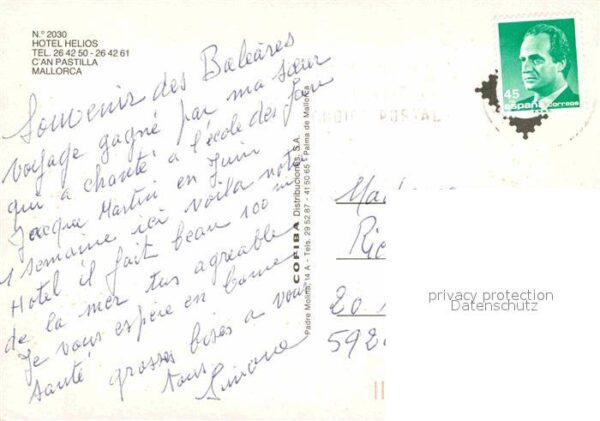 N.º 2030
HOTEL HELIOS
TEL. 26 42 50 - 26 42 61
C'AN PASTILLA
MALLORCA
Souvenir des Baléares
voyage gagné par ma sœur
qui a chanté a l'école des fan
Jacque Martin en Juin
1 semaine ici voila notre
Hotel il fait beau 100 m
de la mer tres agreable
Je vous espère en bonne
santé grosses bises a vous
tous Simone
COPIBA Distribuciones, S.A.
Padre Molina, 14 A - Tels. 29 52 87 - 41 50 65 - Palma de Mallorca
POSTAL
45
españa correos
Mad
Ric
20
592
privacy protection
Datenschutz